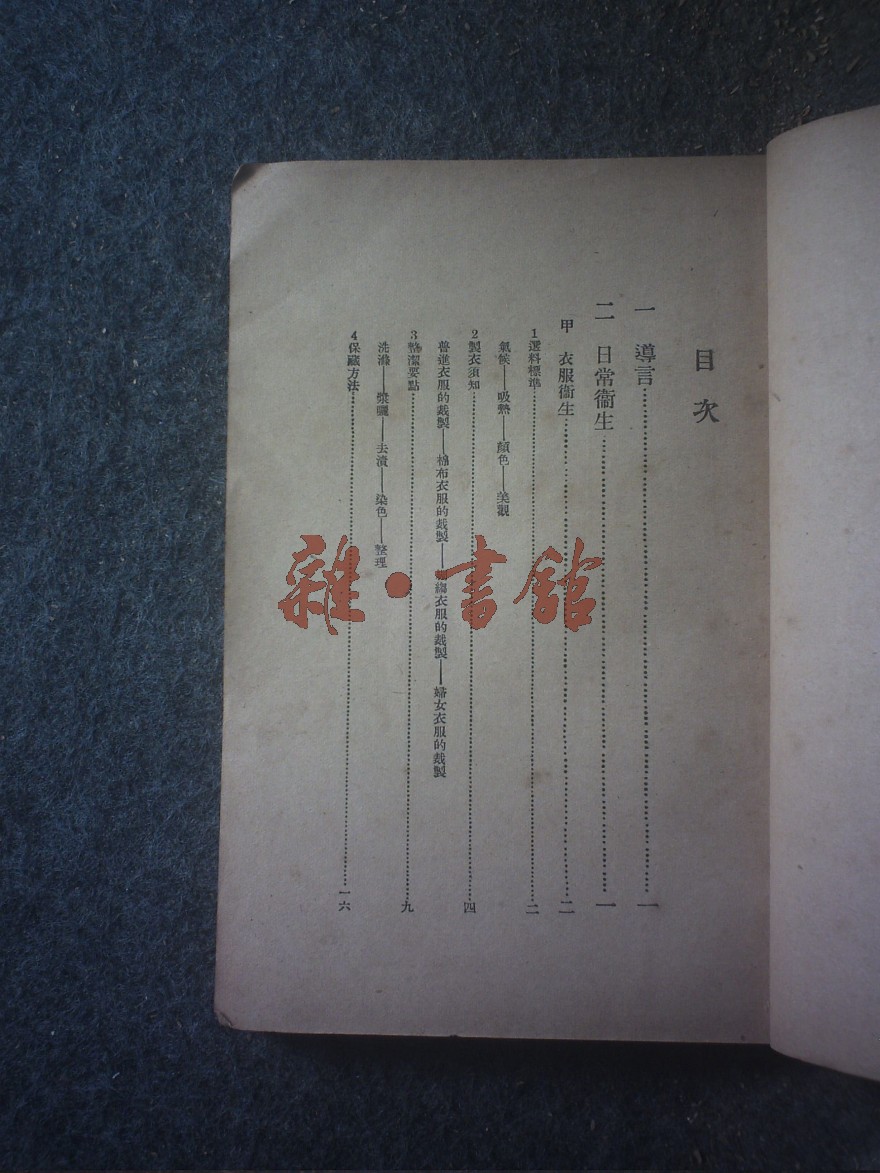 目次
一 導言 一
二 日常衞生 一
甲 衣服衞生 二
1 選料標準 二
氣候——吸熱——顏色——美觀
2 製衣須知 四
普通衣服的裁製——棉布衣服的裁製——綢衣服的裁製——婦女衣服的裁製
3 整潔要點 九
洗滌——漿曬——去漬——染色——整理
4 保藏方法 一六
雜·書館